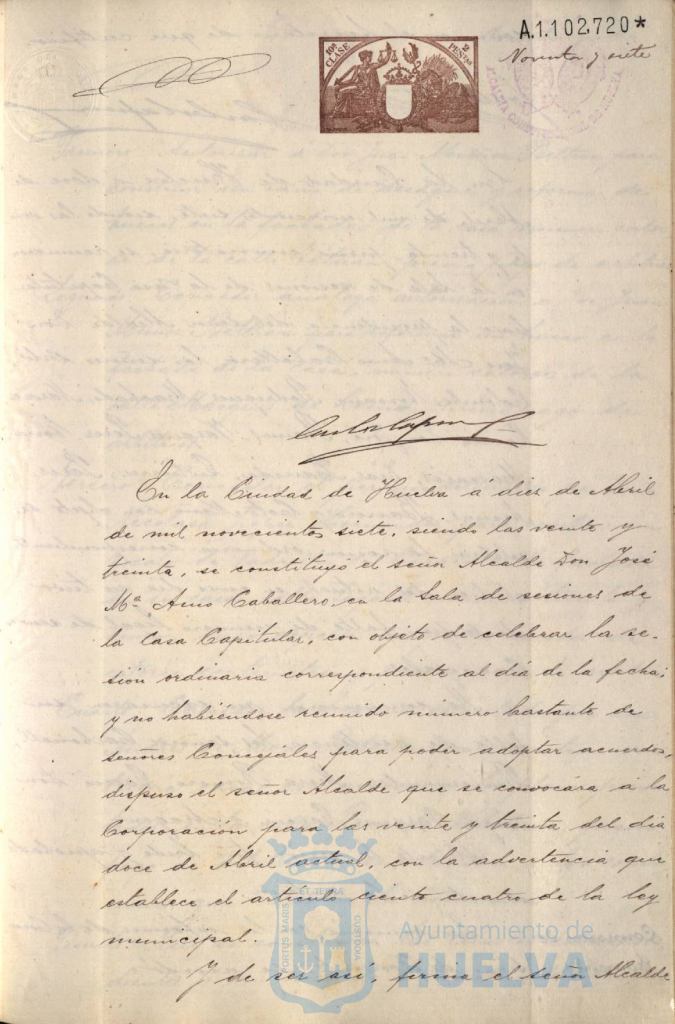 A.1.102,720*
10ª CLASE 2 PESETAS
Noventa y siete
En la Ciudad de Huelva á diez de Abril
de mil novecientos siete, siendo las veinte y
treinta, se constituyó el señor Alcalde Don José
Mª Amo Caballero, en la Sala de sesiones de
la Casa Capitular, con objeto de celebrar la se-
sión ordinaria correspondiente al día de la fecha;
y no habiéndose reunido número bastante de
señores Concejales para poder adoptar acuerdos,
dispuso el señor Alcalde que se convocára á la
Corporación para las veinte y treinta del dia
doce de Abril actual, con la advertencia que
establece el artículo ciento cuatro de la ley
municipal.
Y de ser así, firma el señor Alcalde
PORTUS MARIS ET TERRÆ CUSTODIA
Ayuntamiento de
HUELVA